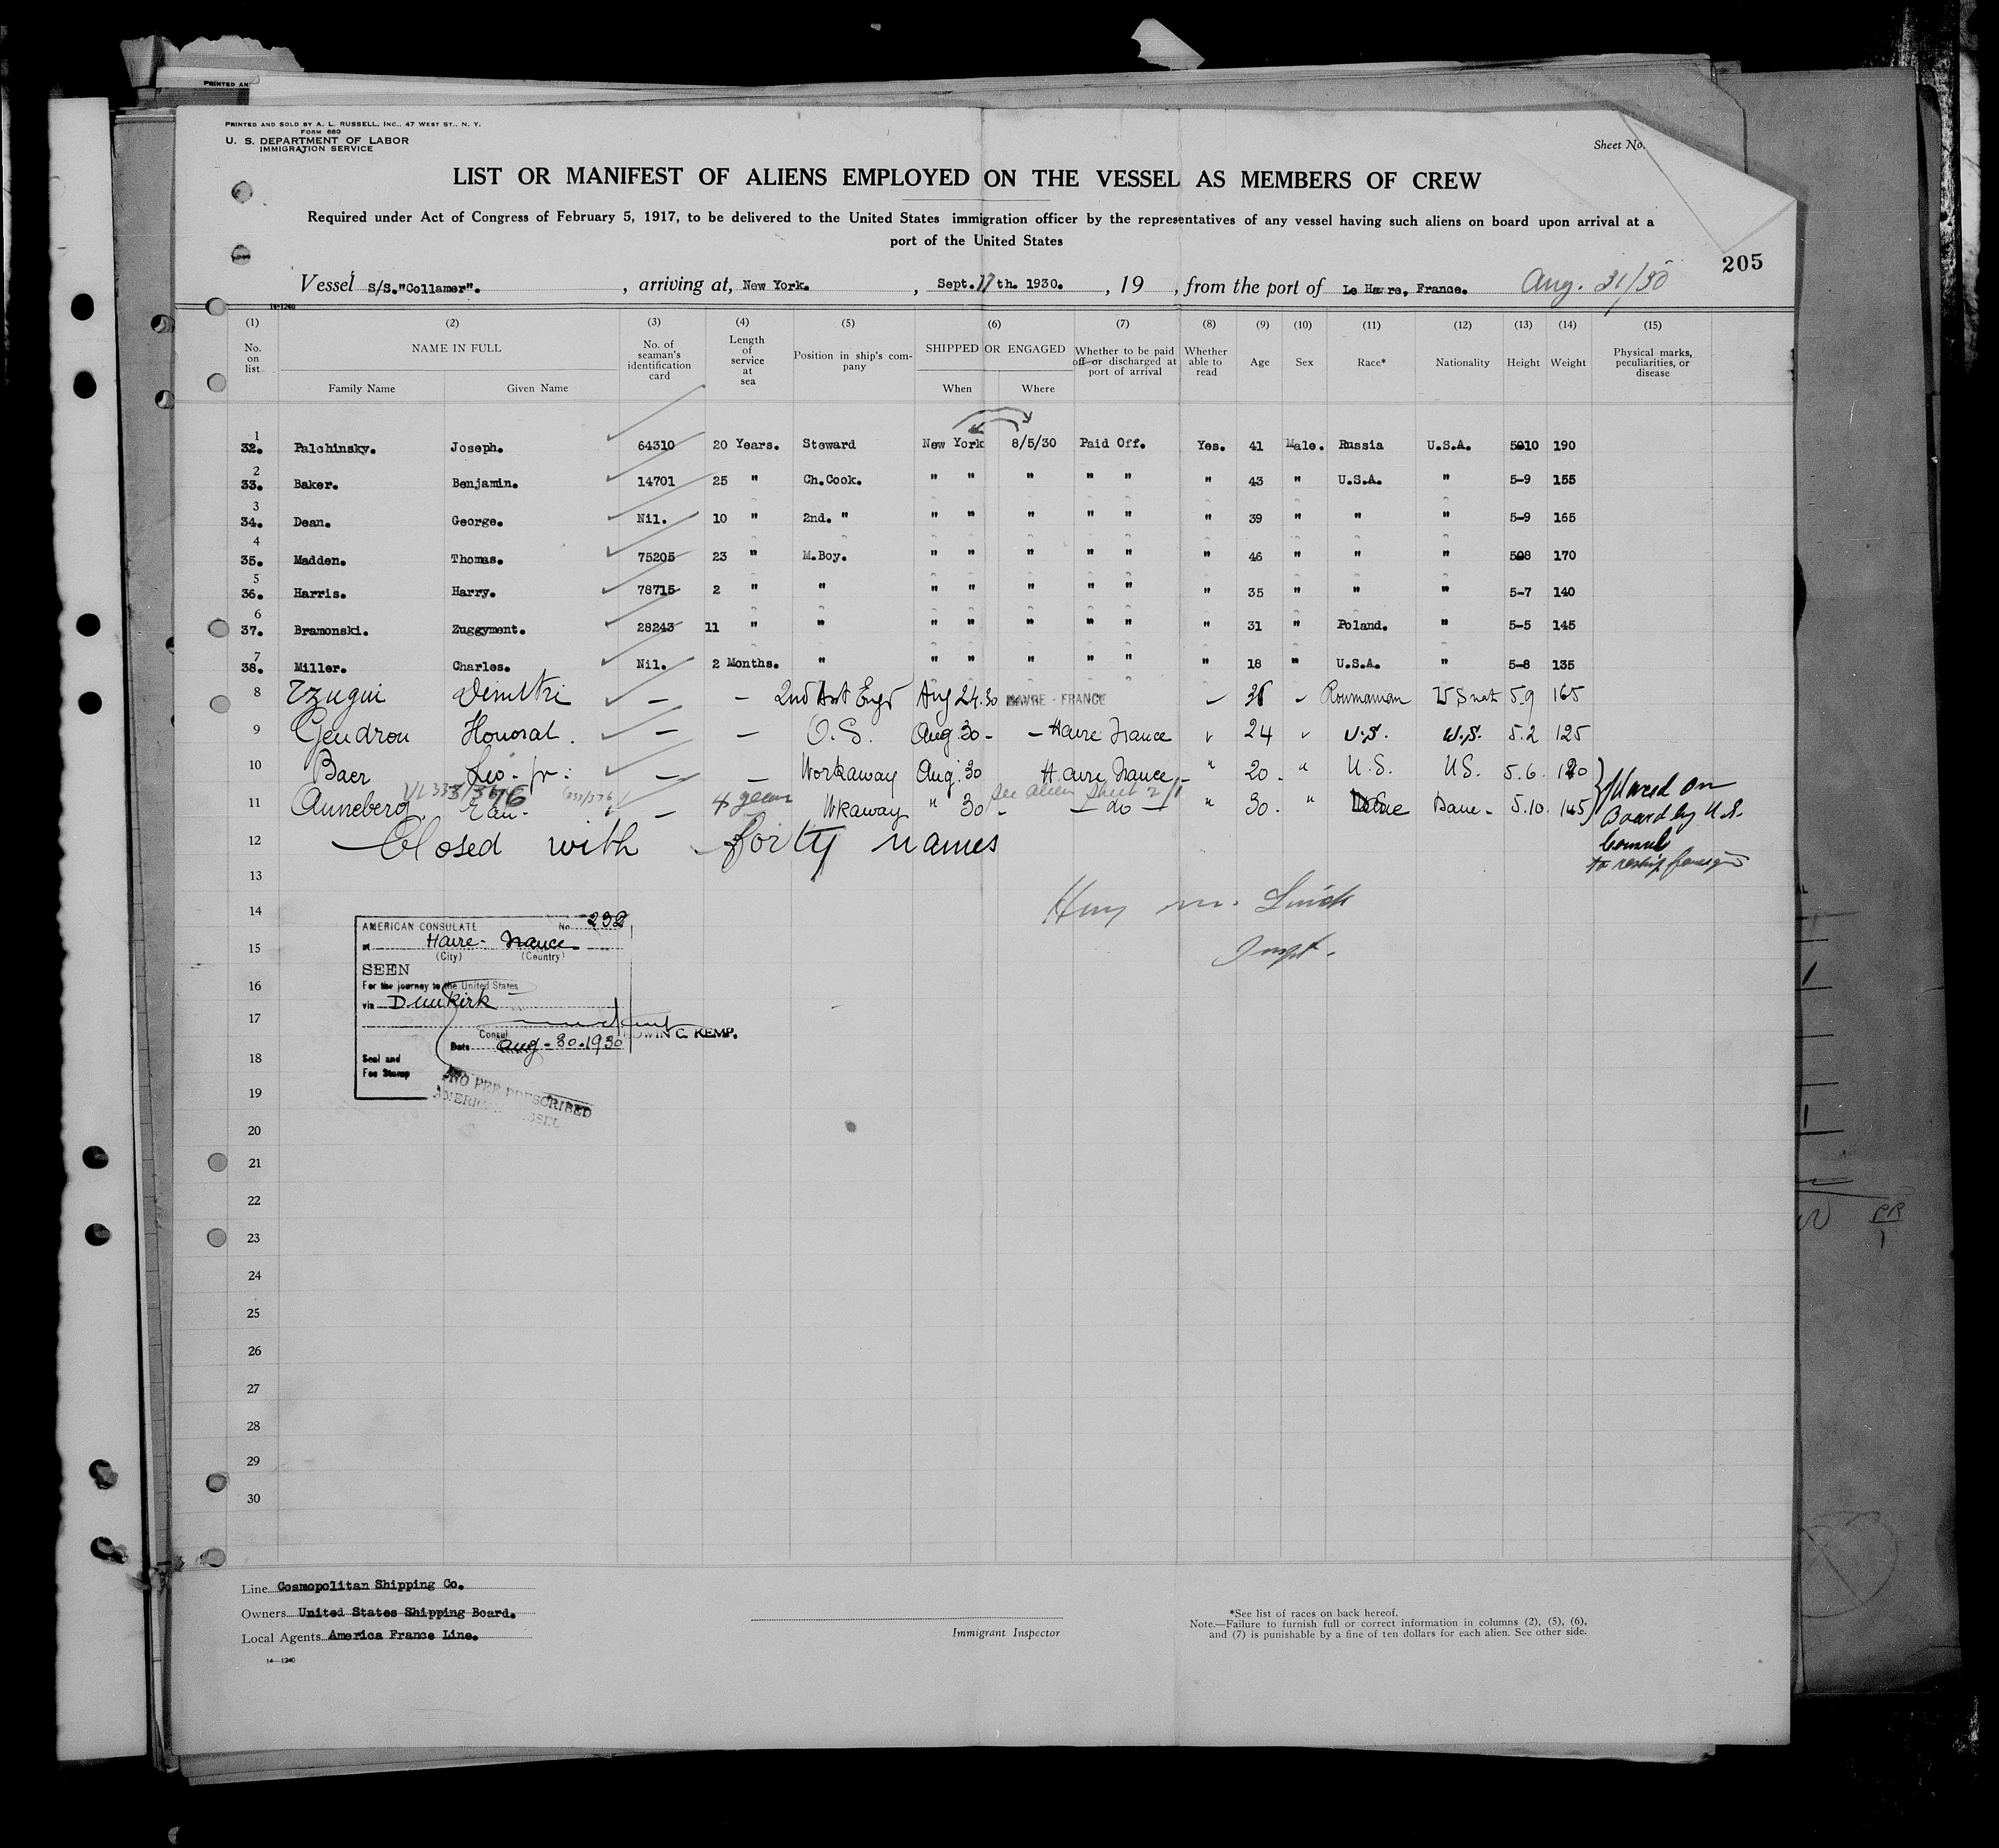 PRINTED AN
PRINTED AND SOLD BY A. L. RUSSELL, INC., 47 WEST ST., N. Y.
FORM 680
U. S. DEPARTMENT OF LABOR
IMMIGRATION SERVICE
Sheet No.
LIST OR MANIFEST OF ALIENS EMPLOYED ON THE VESSEL AS MEMBERS OF CREW
Required under Act of Congress of February 5, 1917, to be delivered to the United States immigration officer by the representatives of any vessel having such aliens on board upon arrival at a
port of the United States
205
Vessel S/S."Collamer". , arriving at, New York. , Sept. 17 th. 1930. , 19 , from the port of Le Havre, France. Aug. 31/30
14-1240
(1) (2) (3) (4) (5) (6) (7) (8) (9) (10) (11) (12) (13) (14) (15)
No. on list NAME IN FULL Family Name Given Name No. of seaman's identification card Length of service at sea Position in ship's company SHIPPED OR ENGAGED When Where Whether to be paid off or discharged at port of arrival Whether able to read Age Sex Race* Nationality Height Weight Physical marks, peculiarities, or disease
1 32. Palchinsky. Joseph. 64310 20 Years. Steward New York 8/5/30 Paid Off. Yes. 41 Male. Russia U.S.A. 5010 190
2 33. Baker. Benjamin. 14701 25 " Ch.Cook. " " " " " " 43 " U.S.A. " 5-9 155
3 34. Dean. George. Nil. 10 " 2nd. " " " " " " " 39 " " " 5-9 165
4 35. Madden. Thomas. 75205 23 " M.Boy. " " " " " " 46 " " " 508 170
5 36. Harris. Harry. 78715 2 " " " " " " " " 35 " " " 5-7 140
6 37. Bramonski. Zuggyment. 28243 11 " " " " " " " " 31 " Poland. " 5-5 145
7 38. Miller. Charles. Nil. 2 Months. " " " " " " " 18 " U.S.A. " 5-8 135
8 Tzugui Dimitri — — 2nd Ast Engr Aug 24.30 HAVRE - FRANCE 36 Roumanian U S nat 5.9 165
9 Gendron Honorat. — — O.S. Aug 30 - - Havre France 24 U.S. U.S. 5.2 125
10 Baer Leo - jr: — — Workaway Aug. 30 Havre France - " 20 - " U.S. US. 5.6. 120
VL 333/376 (333/376) see alien sheet 2/1
11 Anneberg. — 4 years Wkaway " 30 - — do — " 30. " Dane - 5.10. 145
Placed on
Board by U.S.
Consul
to reship foreign
12 Closed with forty names
13
14
15
16
17
18
19
20
21
22
23
24
25
26
27
28
29
30
Insptr.
AMERICAN CONSULATE No. 232
at Havre - France
(City) (Country)
SEEN
For the journey to the United States
via Dunkirk
EDWIN C. KEMP.
Consul
Date Aug - 30. 1930
Seal and
Fee Stamp
NO FEE PRESCRIBED
AMERICAN VESSEL
Line Cosmopolitan Shipping Co.
Owners United States Shipping Board.
Local Agents America France Line.
14-1240
Immigrant Inspector
*See list of races on back hereof.
Note.—Failure to furnish full or correct information in columns (2), (5), (6),
and (7) is punishable by a fine of ten dollars for each alien. See other side.
PR
1